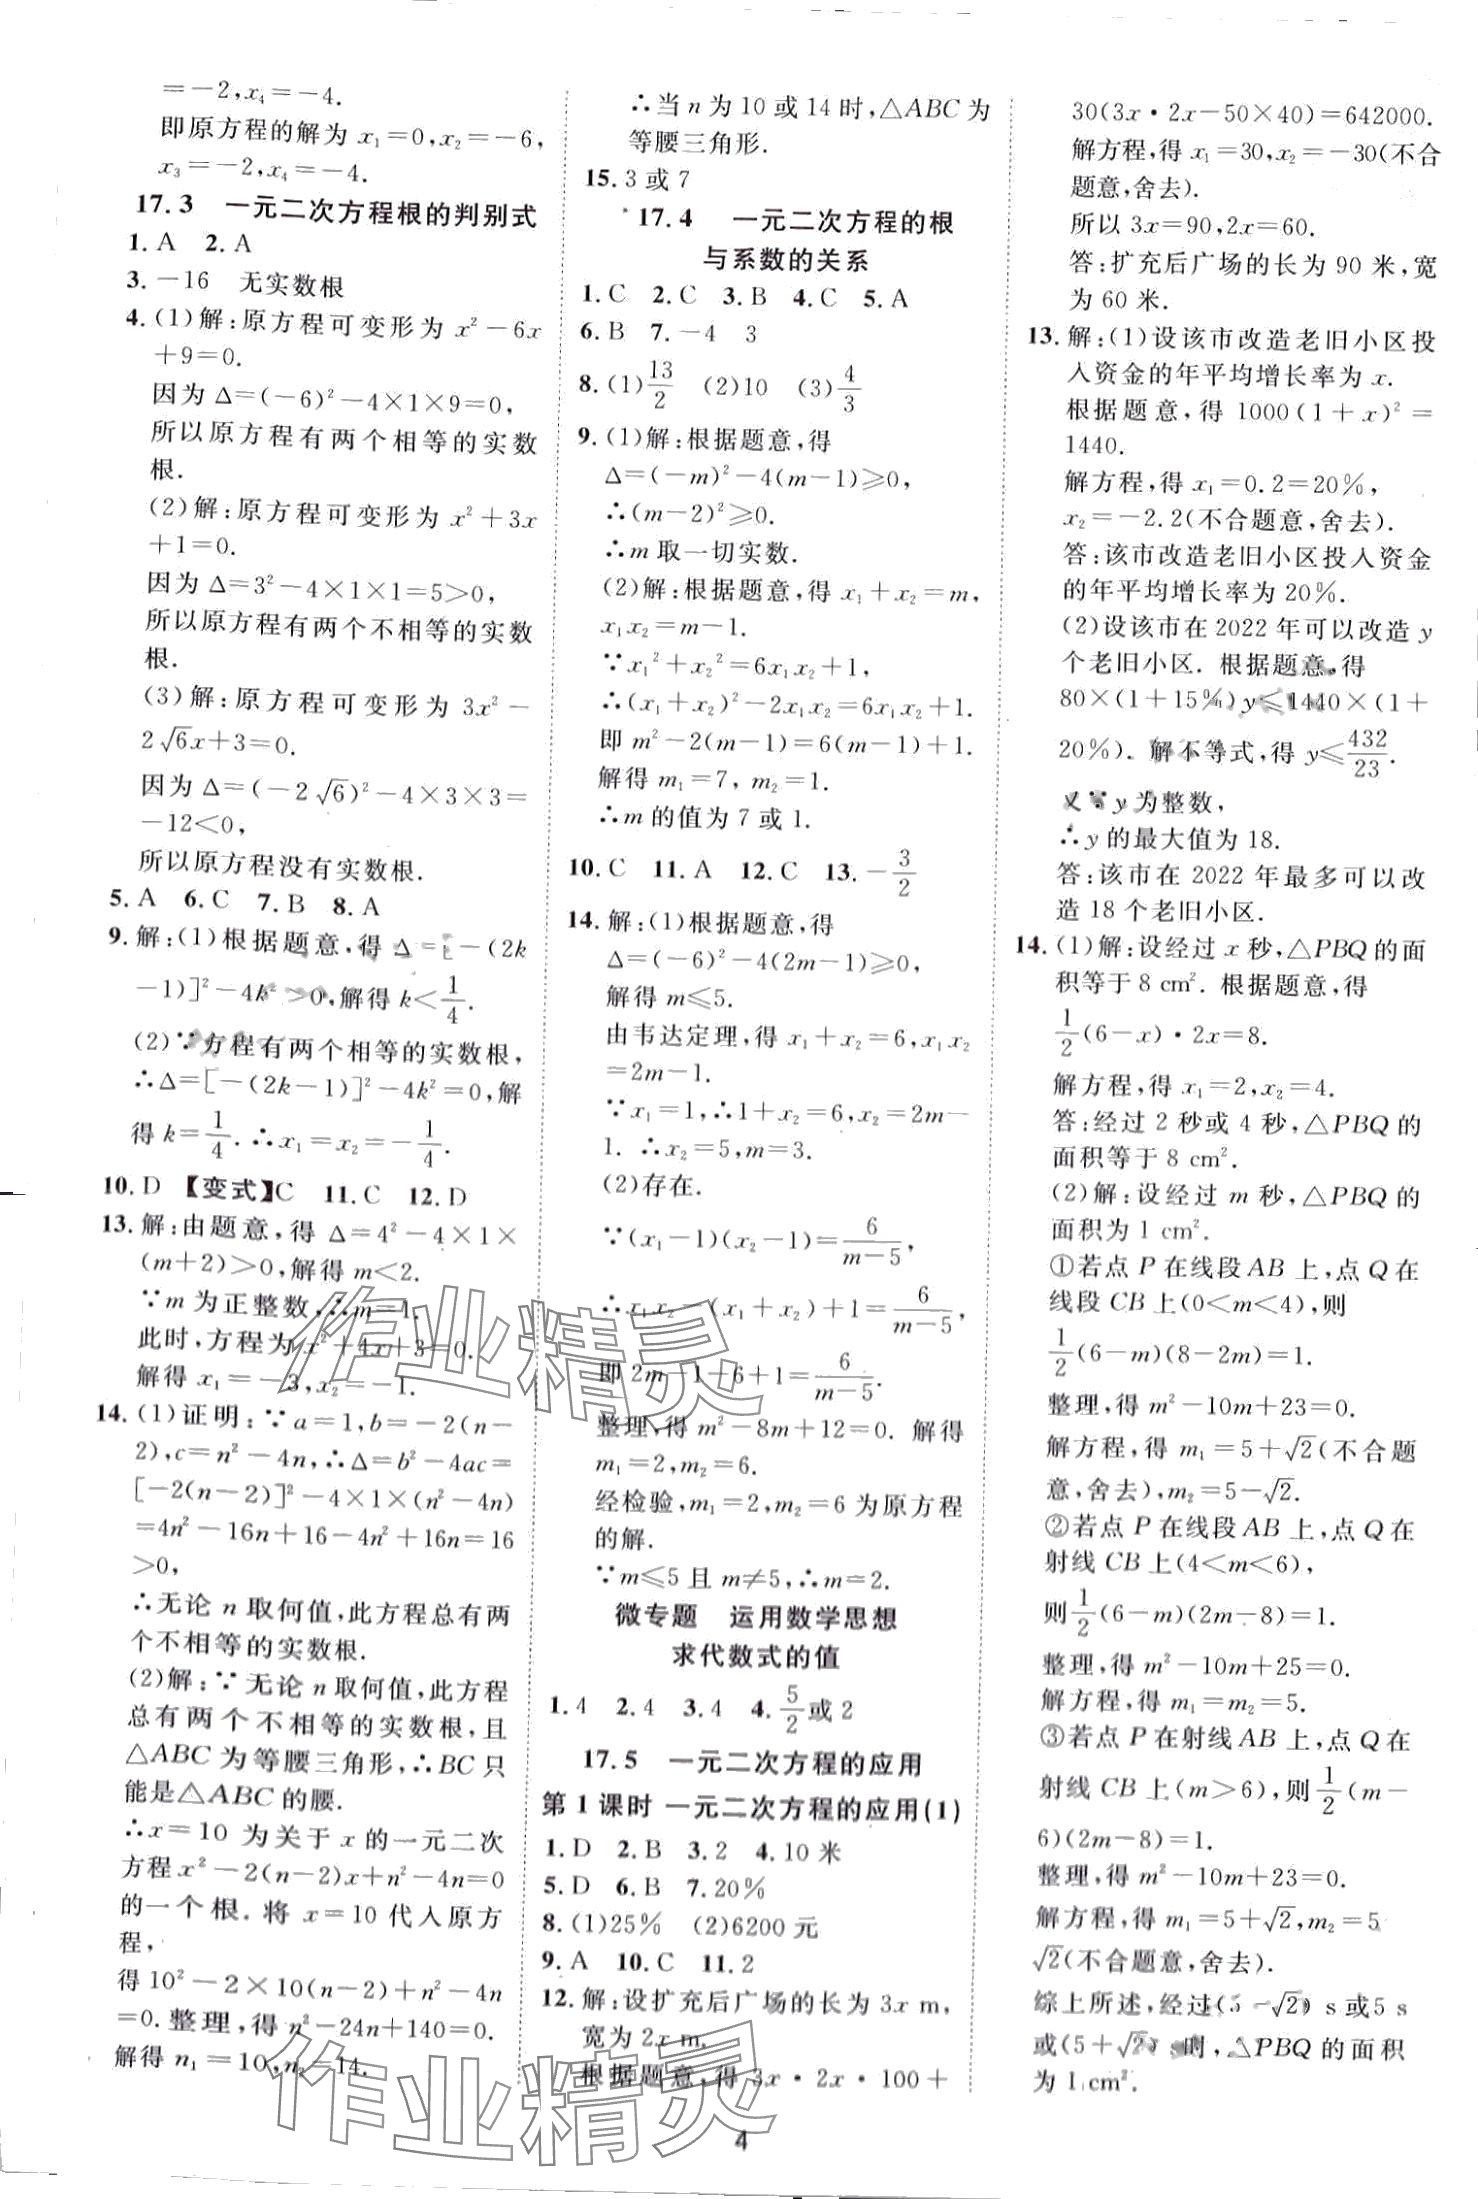 =-2,x₄=-4.
即原方程的解为 x₁=0,x₂=-6,
x₃=-2,x₄=-4.
17.3 一元二次方程根的判别式
1.A 2.A
3.-16 无实数根
4.(1)解:原方程可变形为 x²-6x
+9=0.
因为 Δ=(-6)²-4×1×9=0,
所以原方程有两个相等的实数
根.
(2)解:原方程可变形为 x²+3x
+1=0.
因为 Δ=3²-4×1×1=5>0,
所以原方程有两个不相等的实数
根.
(3)解:原方程可变形为 3x²-
2√6x+3=0.
因为 Δ=(-2√6)²-4×3×3=
-12<0,
所以原方程没有实数根.
5.A 6.C 7.B 8.A
9.解:(1)根据题意,得 Δ=[-(2k
-1)]²-4k²>0,解得 k<1/4.
(2)∵方程有两个相等的实数根,
∴Δ=[-(2k-1)]²-4k²=0,解
得 k=1/4.∴x₁=x₂=-1/4.
10.D 【变式】C 11.C 12.D
13.解:由题意,得 Δ=4²-4×1×
(m+2)>0,解得 m<2.
∵m 为正整数,∴m=1.
此时,方程为 x²+4x+3=0.
解得 x₁=-3,x₂=-1.
14.(1)证明:∵a=1,b=-2(n-
2),c=n²-4n,∴Δ=b²-4ac=
[-2(n-2)]²-4×1×(n²-4n)
=4n²-16n+16-4n²+16n=16
>0,
∴无论 n 取何值,此方程总有两
个不相等的实数根.
(2)解:∵无论 n 取何值,此方程
总有两个不相等的实数根,且
△ABC 为等腰三角形,∴BC 只
能是△ABC 的腰.
∴x=10 为关于 x 的一元二次
方程 x²-2(n-2)x+n²-4n=0
的一个根.将 x=10 代入原方
程,
得 10²-2×10(n-2)+n²-4n
=0.整理,得 n²-24n+140=0.
解得 n₁=10,n₂=14.
∴当 n 为 10 或 14 时,△ABC 为
等腰三角形.
15.3 或 7
17.4 一元二次方程的根
与系数的关系
1.C 2.C 3.B 4.C 5.A
6.B 7.-4 3
8.(1)13/2 (2)10 (3)4/3
9.(1)解:根据题意,得
Δ=(-m)²-4(m-1)≥0,
∴(m-2)²≥0.
∴m 取一切实数.
(2)解:根据题意,得 x₁+x₂=m,
x₁x₂=m-1.
∵x₁²+x₂²=6x₁x₂+1,
∴(x₁+x₂)²-2x₁x₂=6x₁x₂+1.
即 m²-2(m-1)=6(m-1)+1.
解得 m₁=7, m₂=1.
∴m 的值为 7 或 1.
10.C 11.A 12.C 13.-3/2
14.解:(1)根据题意,得
Δ=(-6)²-4(2m-1)≥0,
解得 m≤5.
由韦达定理,得 x₁+x₂=6,x₁x₂
=2m-1.
∵x₁=1,∴1+x₂=6,x₂=2m-
1. ∴x₂=5,m=3.
(2)存在.
∵(x₁-1)(x₂-1)=6/(m-5),
∴x₁x₂-(x₁+x₂)+1=6/(m-5),
即 2m-1-6+1=6/(m-5).
整理,得 m²-8m+12=0. 解得
m₁=2,m₂=6.
经检验,m₁=2,m₂=6 为原方程
的解.
∵m≤5 且 m≠5,∴m=2.
微专题 运用数学思想
求代数式的值
1.4 2.4 3.4 4.5/2或 2
17.5 一元二次方程的应用
第 1 课时 一元二次方程的应用(1)
1.D 2.B 3.2 4.10 米
5.D 6.B 7.20%
8.(1)25% (2)6200 元
9.A 10.C 11.2
12.解:设扩充后广场的长为 3x m,
宽为 2x m.
根据题意,得 3x·2x·100+
30(3x·2x-50×40)=642000.
解方程,得 x₁=30,x₂=-30(不合
题意,舍去).
所以 3x=90,2x=60.
答:扩充后广场的长为 90 米,宽
为 60 米.
13.解:(1)设该市改造老旧小区投
入资金的年平均增长率为 x.
根据题意,得 1000(1+x)²=
1440.
解方程,得 x₁=0.2=20%,
x₂=-2.2(不合题意,舍去).
答:该市改造老旧小区投入资金
的年平均增长率为 20%.
(2)设该市在 2022 年可以改造 y
个老旧小区. 根据题意,得
80×(1+15%)y≤1440×(1+
20%). 解不等式,得 y≤432/23.
又∵y 为整数,
∴y 的最大值为 18.
答:该市在 2022 年最多可以改
造 18 个老旧小区.
14.(1)解:设经过 x 秒,△PBQ 的面
积等于 8 cm². 根据题意,得
1/2(6-x)·2x=8.
解方程,得 x₁=2,x₂=4.
答:经过 2 秒或 4 秒,△PBQ 的
面积等于 8 cm².
(2)解:设经过 m 秒,△PBQ 的
面积为 1 cm².
①若点 P 在线段 AB 上,点 Q 在
线段 CB 上(0<m<4),则
1/2(6-m)(8-2m)=1.
整理,得 m²-10m+23=0.
解方程,得 m₁=5+√2(不合题
意,舍去),m₂=5-√2.
②若点 P 在线段 AB 上,点 Q 在
射线 CB 上(4<m<6),
则1/2(6-m)(2m-8)=1.
整理,得 m²-10m+25=0.
解方程,得 m₁=m₂=5.
③若点 P 在射线 AB 上,点 Q 在
射线 CB 上(m>6),则1/2(m-
6)(2m-8)=1.
整理,得 m²-10m+23=0.
解方程,得 m₁=5+√2,m₂=5
√2(不合题意,舍去).
综上所述,经过(5-√2) s 或5 s
或(5+√2)s 时,△PBQ 的面积
为 1 cm².
作业精灵
作业精灵
4